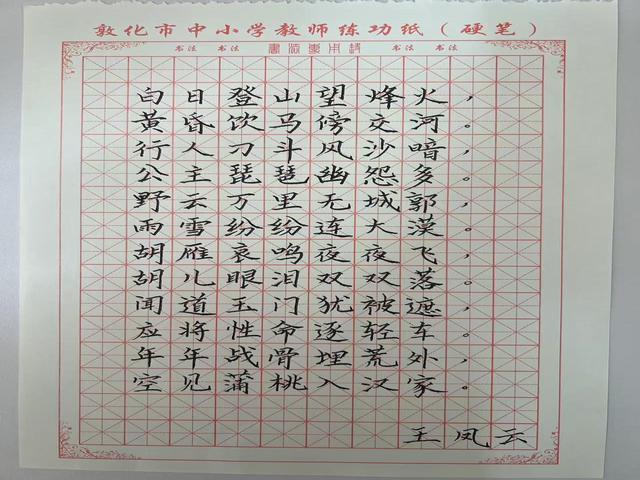 敦化市中小学教师练功纸（硬笔）
书法 书法 书法 书法
白日登山望烽火，
黄昏饮马傍交河。
行人刁斗风沙暗，
公主琵琶幽怨多。
野云万里无城郭，
雨雪纷纷连大漠。
胡雁哀鸣夜夜飞，
胡儿眼泪双双落。
闻道玉门犹被遮，
应将性命逐轻车。
年年战骨埋荒外，
空见蒲桃入汉家。
王凤云